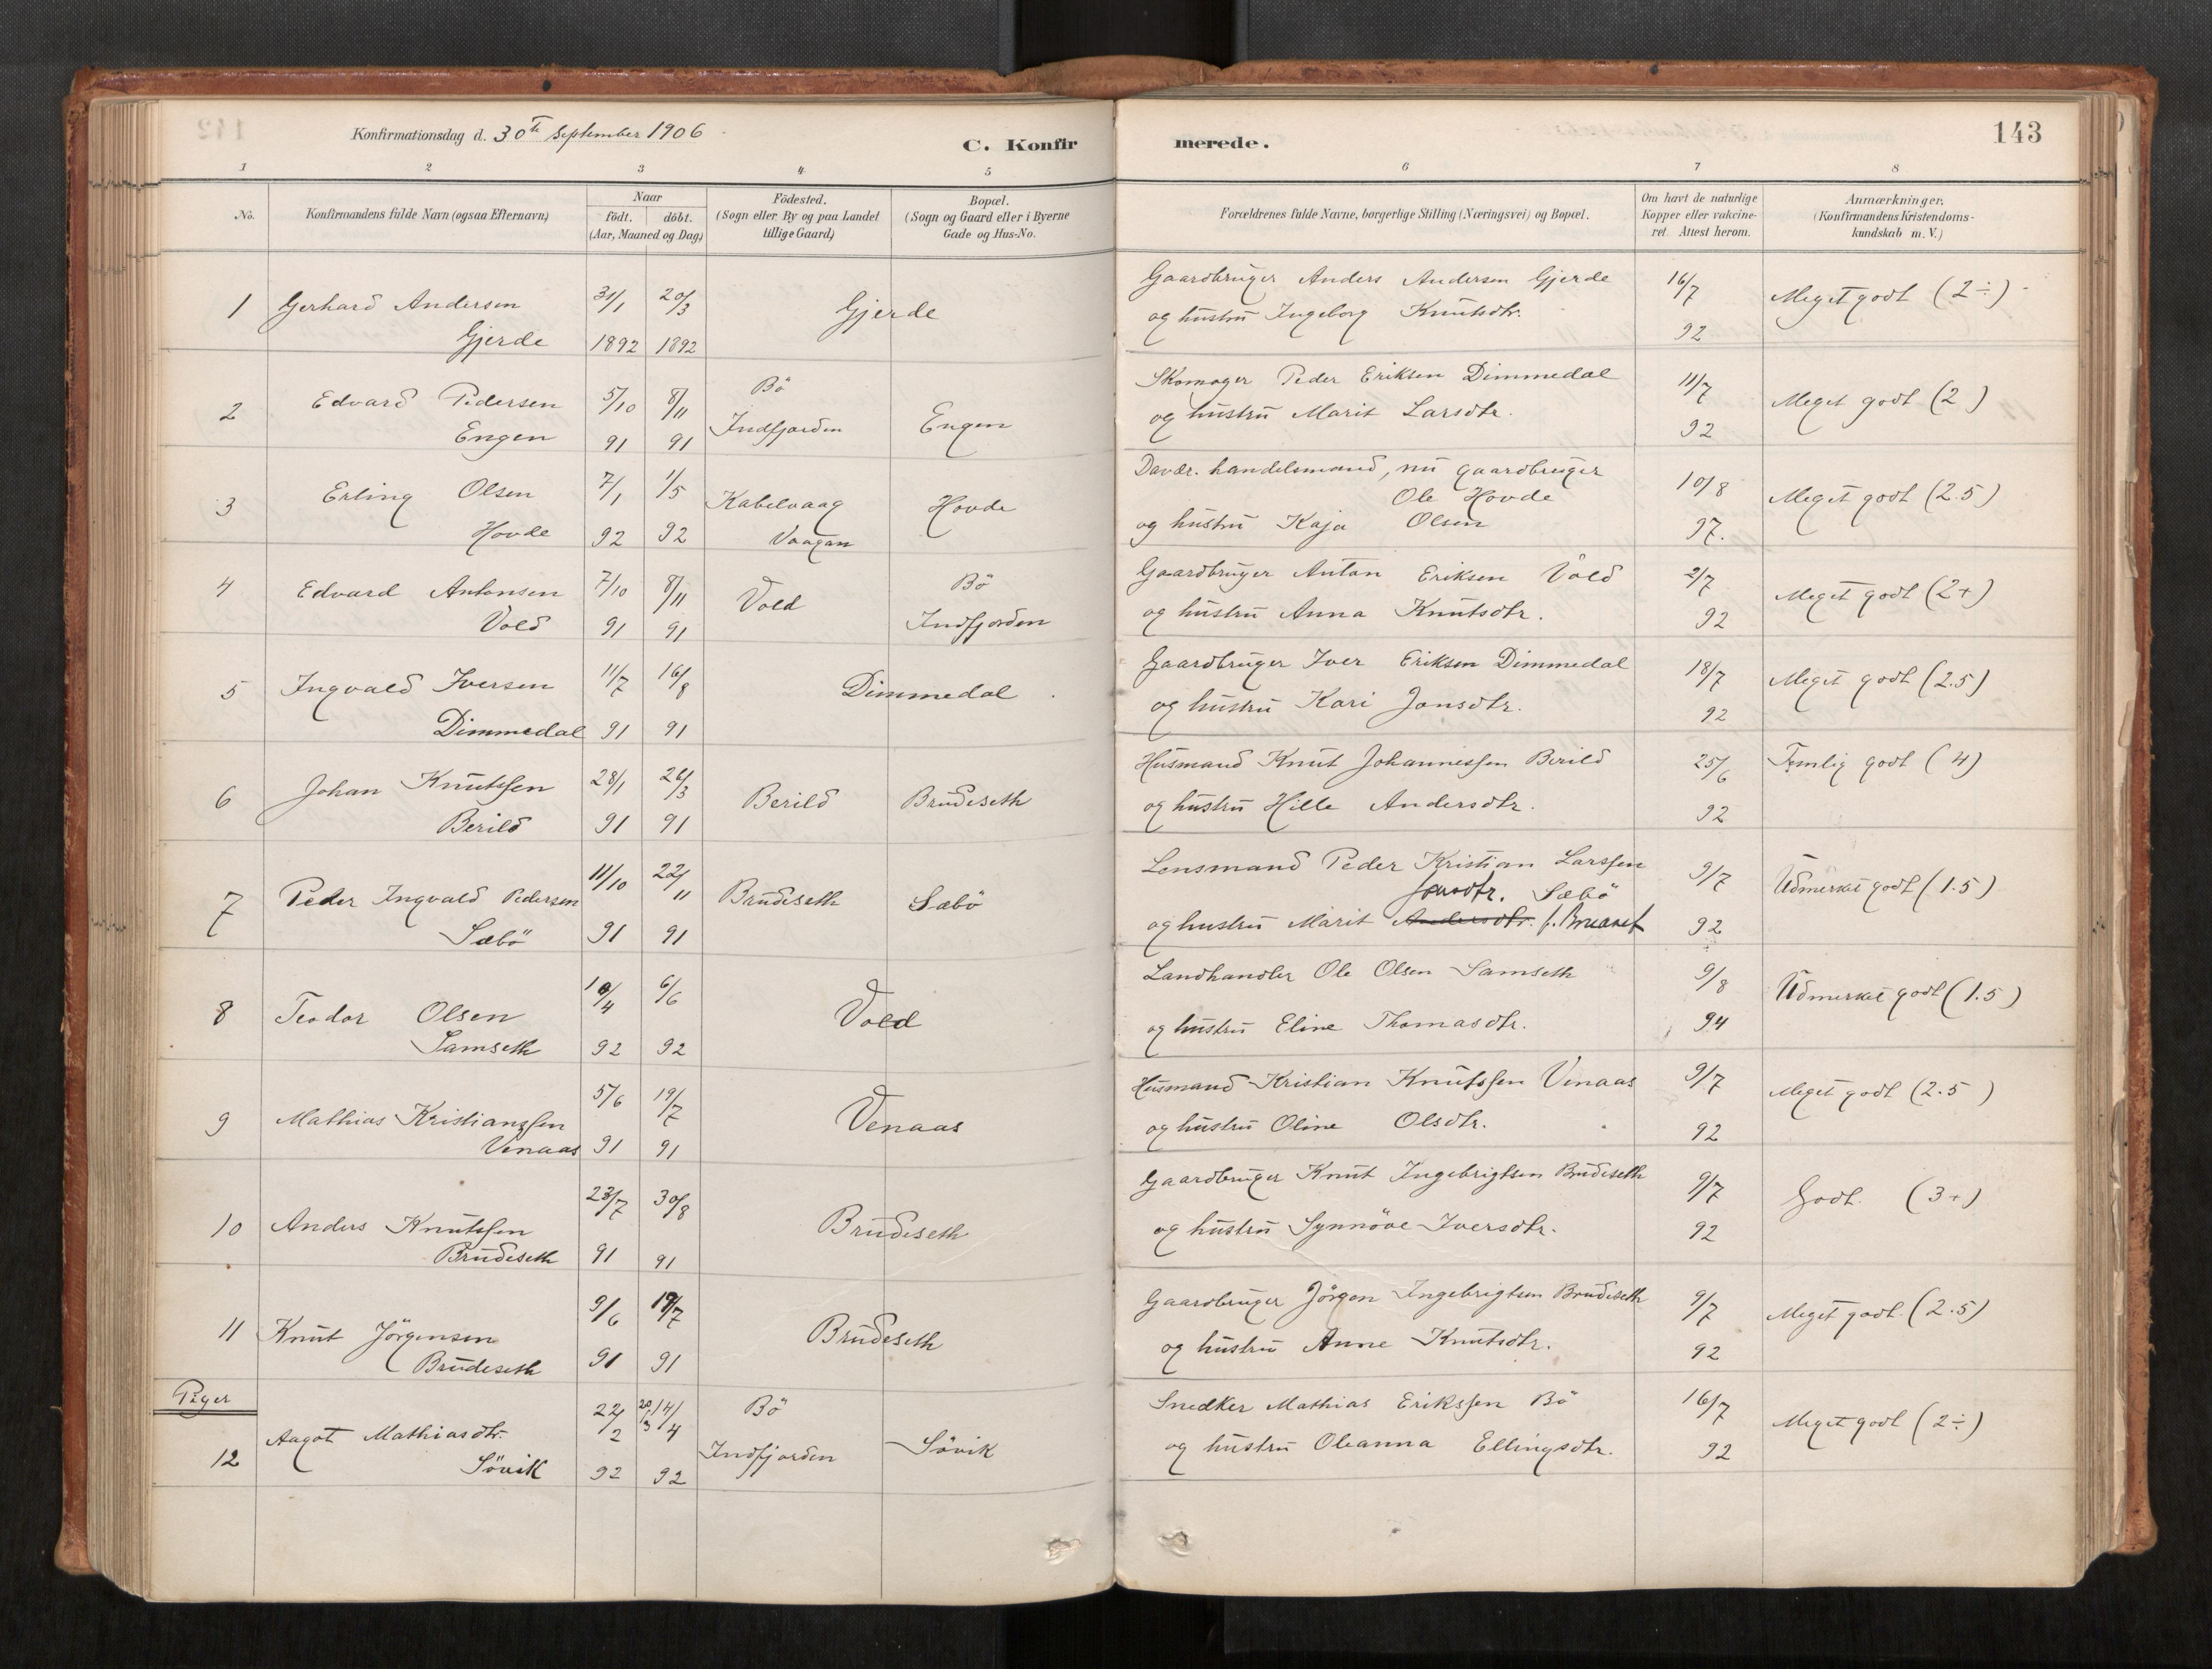 Konfirmationsdag d. 30te September 1906
C. Konfirmerede.
143
1 2 3 4 5 6 7 8
No.
Konfirmandens fulde Navn (ogsaa Efternavn)
Naar
födt. döbt.
(Aar, Maaned og Dag)
Födested.
(Sogn eller By og paa Landet
tillige Gaard)
Bopæl.
(Sogn og Gaard eller i Byerne
Gade og Hus-No.
Forældrenes fulde Navne, borgerlige Stilling (Næringsvei) og Bopæl.
Om havt de naturlige
Kopper eller vakcine-
ret. Attest herom.
Anmærkninger.
(Konfirmandens Kristendoms-
kundskab m. V.)
1 Gerhard Andersen 31/1 20/3 Gjerde
Gjerde 1892 1892
Gaardbruger Anders Andersen Gjerde 16/7 Meget godt (2÷)
og hustru Ingeborg Knutsdtr. 92
2 Edvard Pedersen 5/10 8/11 Bö
Engen 91 91 Indfjorden Engen
Skomager Peder Eriksen Dimmedal 11/7 Meget godt (2)
og hustru Marit Larsdtr. 92
3 Erling Olsen 7/1 1/5 Kabelvaag Hovde
Hovde 92 92 Vaagan
Davær. handelsmand, nu gaardbruger
Ole Hovde 10/8 Meget godt (2.5)
og hustru Kaja Olsen 97.
4 Edvard Antonsen 7/10 8/11 Vold Bö
Vold 91 91 Indfjorden
Gaardbruger Anton Eriksen Vold 2/7 Meget godt (2+)
og hustru Anna Knutsdtr. 92
5 Ingvald Iversen 11/7 16/8 Dimmedal
Dimmedal 91 91
Gaardbruger Iver Eriksen Dimmedal 18/7 Meget godt (2.5)
og hustru Kari Jonsdtr. 92
6 Johan Knutssen 28/1 26/3 Berild Brudeseth
Berild 91 91
Husmand Knut Johannessen Berild 25/6 Temlig godt (4)
og hustru Hille Andersdtr. 92
7 Peder Ingvald Pedersen 11/10 22/11 Brudeseth Sæbö
Sæbö 91 91
Lensmand Peder Kristian Larssen 9/7 Udmerket godt (1.5)
Jonsdtr. Sæbö
og hustru Marit Andersdtr. 92
8 Teodor Olsen 10/4 6/6 Vold
Samseth 92 92
Landhandler Ole Olsen Samseth 9/8 Udmerket godt (1.5)
og hustru Eline Thomasdtr. 94
9 Mathias Kristianssen 5/6 19/7 Venaas
Venaas 91 91
Husmand Kristian Knutssen Venaas 9/7 Meget godt (2.5)
og hustru Oline Olsdtr. 92
10 Anders Knutssen 23/7 30/8 Brudeseth
Brudeseth 91 91
Gaardbruger Knut Ingebrigtsen Brudeseth 9/7 Godt. (3+)
og hustru Synnöve Iversdtr. 92
11 Knut Jörgensen 9/6 19/7 Brudeseth
Brudeseth 91 91
Gaardbruger Jörgen Ingebrigtsen Brudeseth 9/7 Meget godt. (2.5)
og hustru Anne Knutsdtr. 92
Piger
12 Aagot Mathiasdtr. 22/2 20/3 14/4 Bö
Sövik 92 92 Indfjorden Sövik
Snedker Mathias Erikssen Bö 16/7 Meget godt (2÷)
og hustru Oleanna Ellingsdtr. 92